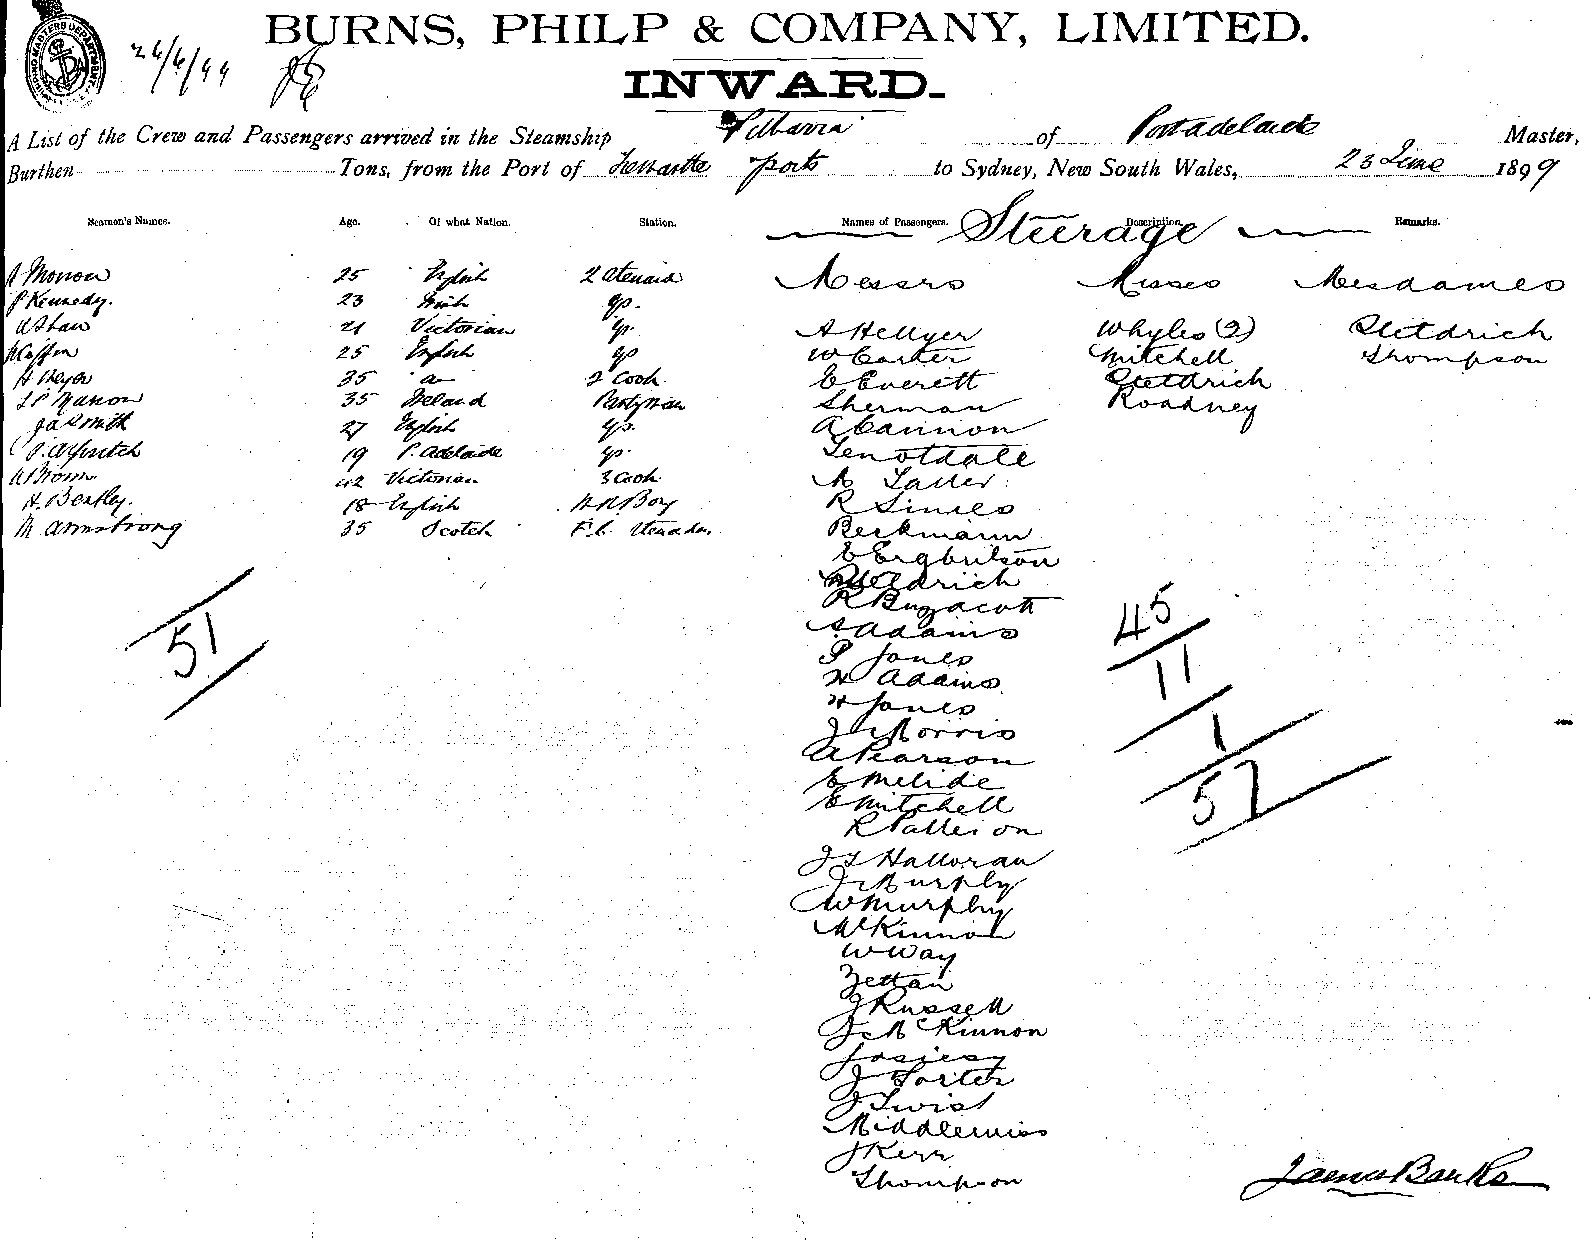 BURNS, PHILP & COMPANY, LIMITED.
26/6/99
INWARD.
A List of the Crew and Passengers arrived in the Steamship Pilbarra of Port Adelaide Master,
Burthen Tons, from the Port of Fremantle ports to Sydney, New South Wales, 23 June 1899
Seamen's Names. Age. Of what Nation. Station. Names of Passengers. Description. Remarks.
Steerage
25 English 2 Steward Messrs Misses Mesdames
P Kennedy. 23 Irish Do.
A Shaw 21 Victorian Do. A Hellyer Whyles (2) Dietdrich
25 English Do W Carter Mitchell Thompson
H Meyer 35 2 Cook E Everett Dietdrich
35 Ireland Pantryman Sherman Roadney
Jas Smith 27 English Do. A Cannon
19 P. Adelaide Do. Tenotdale
A Brown 42 Victorian 3 Cook
H. Bentley. 18 English Boy R Sinies
M Armstrong 35 Scotch F.C. Stewardess. Beekmann
E Engbritson
Dietdrich
R Buzacott
S Adams
P Jones
W Adams
H Jones
J Morris
A Pearson
E Melide
E Mitchell
R Patterson
J T Halloran
J Murphy
W Murphy
McKinnon
W Way
Zettan
J Russell
J McKinnon
J Porter
J Twist
Middlemiss
J Kerr
Thompson
51
45
11
1
57
James Banks